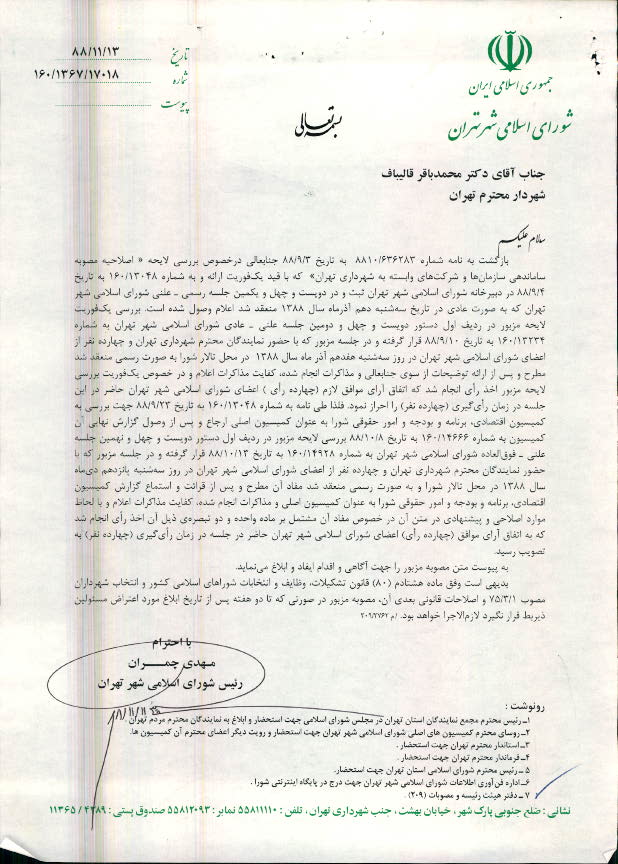 جمهوری اسلامی ایران
شورای اسلامی شهر تهران
تاریخ ۸۸/۱۱/۱۳
شماره ۱۶۰/۱۳۶۷/۱۷۰۱۸
پیوست
بسمه تعالی
جناب آقای دکتر محمدباقر قالیباف
شهردار محترم تهران
سلام علیکم
بازگشت به نامه شماره ۸۸۱۰/۶۳۶۲۸۳ به تاریخ ۸۸/۹/۳ جنابعالی درخصوص بررسی لایحه « اصلاحیه مصوبه
ساماندهی سازمان‌ها و شرکت‌های وابسته به شهرداری تهران» که با قید یک‌فوریت ارائه و به شماره ۱۶۰/۱۳۰۴۸ به تاریخ
۸۸/۹/۴ در دبیرخانه شورای اسلامی شهر تهران ثبت و در دویست و چهل و یکمین جلسه رسمی ـ علنی شورای اسلامی شهر
تهران که به صورت عادی در تاریخ سه‌شنبه دهم آذرماه سال ۱۳۸۸ منعقد شد اعلام وصول شده است. بررسی یک‌فوریت
لایحه مزبور در ردیف اول دستور دویست و چهل و دومین جلسه علنی ـ عادی شورای اسلامی شهر تهران به شماره
۱۶۰/۱۳۲۳۴ به تاریخ ۸۸/۹/۱۰ قرار گرفته و در جلسه مزبور که با حضور نمایندگان محترم شهرداری تهران و چهارده نفر از
اعضای شورای اسلامی شهر تهران در روز سه‌شنبه هفدهم آذر ماه سال ۱۳۸۸ در محل تالار شورا به صورت رسمی منعقد شد
مطرح و پس از ارائه توضیحات از سوی جنابعالی و مذاکرات انجام شده، کفایت مذاکرات اعلام و در خصوص یک‌فوریت بررسی
لایحه مزبور اخذ رأی انجام شد که اتفاق آرای موافق لازم (چهارده رأی ) اعضای شورای اسلامی شهر تهران حاضر در این
جلسه در زمان رأی‌گیری (چهارده نفر) را احراز نمود. فلذا طی نامه به شماره ۱۶۰/۱۳۰۴۸ به تاریخ ۸۸/۹/۲۳ جهت بررسی به
کمیسیون اقتصادی، برنامه و بودجه و امور حقوقی شورا به عنوان کمیسیون اصلی ارجاع و پس از وصول گزارش نهایی آن
کمیسیون به شماره ۱۶۰/۱۴۶۶۶ به تاریخ ۸۸/۱۰/۸ بررسی لایحه مزبور در ردیف اول دستور دویست و چهل و نهمین جلسه
علنی ـ فوق‌العاده شورای اسلامی شهر تهران به شماره ۱۶۰/۱۴۹۲۸ به تاریخ ۸۸/۱۰/۱۳ قرار گرفته و در جلسه مزبور که با
حضور نمایندگان محترم شهرداری تهران و چهارده نفر از اعضای شورای اسلامی شهر تهران در روز سه‌شنبه پانزدهم دی‌ماه
سال ۱۳۸۸ در محل تالار شورا و به صورت رسمی منعقد شد مفاد آن مطرح و پس از قرائت و استماع گزارش کمیسیون
اقتصادی، برنامه و بودجه و امور حقوقی شورا به عنوان کمیسیون اصلی و مذاکرات انجام شده، کفایت مذاکرات اعلام و با لحاظ
موارد اصلاحی و پیشنهادی در متن آن در خصوص مفاد آن مشتمل بر ماده واحده و دو تبصره‌ی ذیل آن اخذ رأی انجام شد
که به اتفاق آرای موافق (چهارده رأی) اعضای شورای اسلامی شهر تهران حاضر در جلسه در زمان رأی‌گیری (چهارده نفر) به
تصویب رسید.
به پیوست متن مصوبه مزبور را جهت آگاهی و اقدام ایفاد و ابلاغ می‌نماید.
بدیهی است وفق ماده هشتادم (۸۰) قانون تشکیلات، وظایف و انتخابات شوراهای اسلامی کشور و انتخاب شهرداران
مصوب ۷۵/۳/۱ و اصلاحات قانونی بعدی آن، مصوبه مزبور در صورتی که تا دو هفته پس از تاریخ ابلاغ مورد اعتراض مسئولین
ذیربط قرار نگیرد لازم‌الاجرا خواهد بود. /م ۲۰۹/۲۷۶۲
با احترام
مهدی چمران
رئیس شورای اسلامی شهر تهران
رونوشت :
۱ـ رئیس محترم مجمع نمایندگان استان تهران در مجلس شورای اسلامی جهت استحضار و ابلاغ به نمایندگان محترم مردم تهران.
۲ـ روسای محترم کمیسیون های اصلی شورای اسلامی شهر تهران جهت استحضار و رویت دیگر اعضای محترم آن کمیسیون ها.
۳ـ استاندار محترم تهران جهت استحضار .
۴ـ فرماندار محترم تهران جهت استحضار .
۵ ـ رئیس محترم شورای اسلامی استان تهران جهت استحضار.
۶ـ اداره فن‌آوری اطلاعات شورای اسلامی شهر تهران جهت درج در پایگاه اینترنتی شورا .
۷ ـ دفتر هیئت رئیسه و مصوبات (۲۰۹)
نشانی : ضلع جنوبی پارک شهر، خیابان بهشت، جنب شهرداری تهران، تلفن : ۵۵۸۱۱۱۱۰ نمابر : ۵۵۸۱۲۰۹۳ صندوق پستی : ۴۴۸۹ / ۱۱۳۶۵